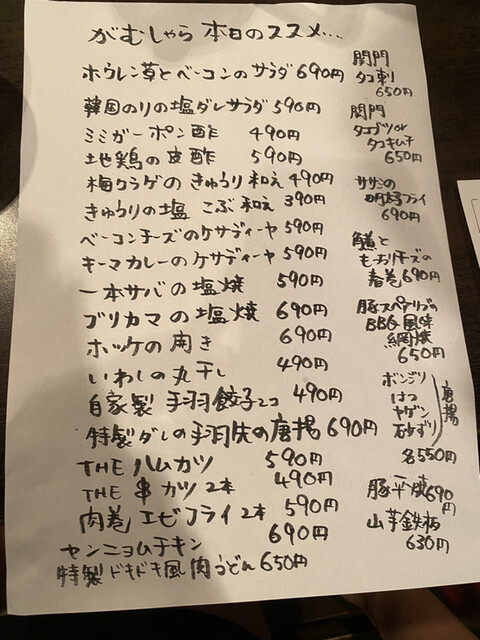 がむしゃら 本日のススメ...
ホウレン草とベーコンのサラダ 690円
韓国のりの塩ダレサラダ 590円
ミミガーポン酢 490円
地鶏の皮酢 590円
梅クラゲのきゅうり和え 490円
きゅうりの塩こぶ和え 390円
ベーコンチーズのケサディーヤ 590円
キーマカレーのケサディーヤ 590円
一本サバの塩焼 590円
ブリカマの塩焼 690円
ホッケの開き 690円
いわしの丸干し 490円
自家製 手羽餃子2コ 490円
特製ダレの手羽先の唐揚 690円
THE ハムカツ 590円
THE 串カツ2本 490円
肉巻エビフライ2本 590円
ヤンニョムチキン 690円
特製ドキドキ風肉うどん 650円
関門
タコ刺
650円
関門
タコブツor
タコキムチ
650円
ササミの
明太子フライ
690円
鱶と
もちりチーズの
春巻 690円
豚スペアリブの
BBQ風味
網焼
650円
ボンジリ
はつ
ヤゲン
砂ずり
唐揚
各550円
豚平焼 690円
山芋鉄板
630円